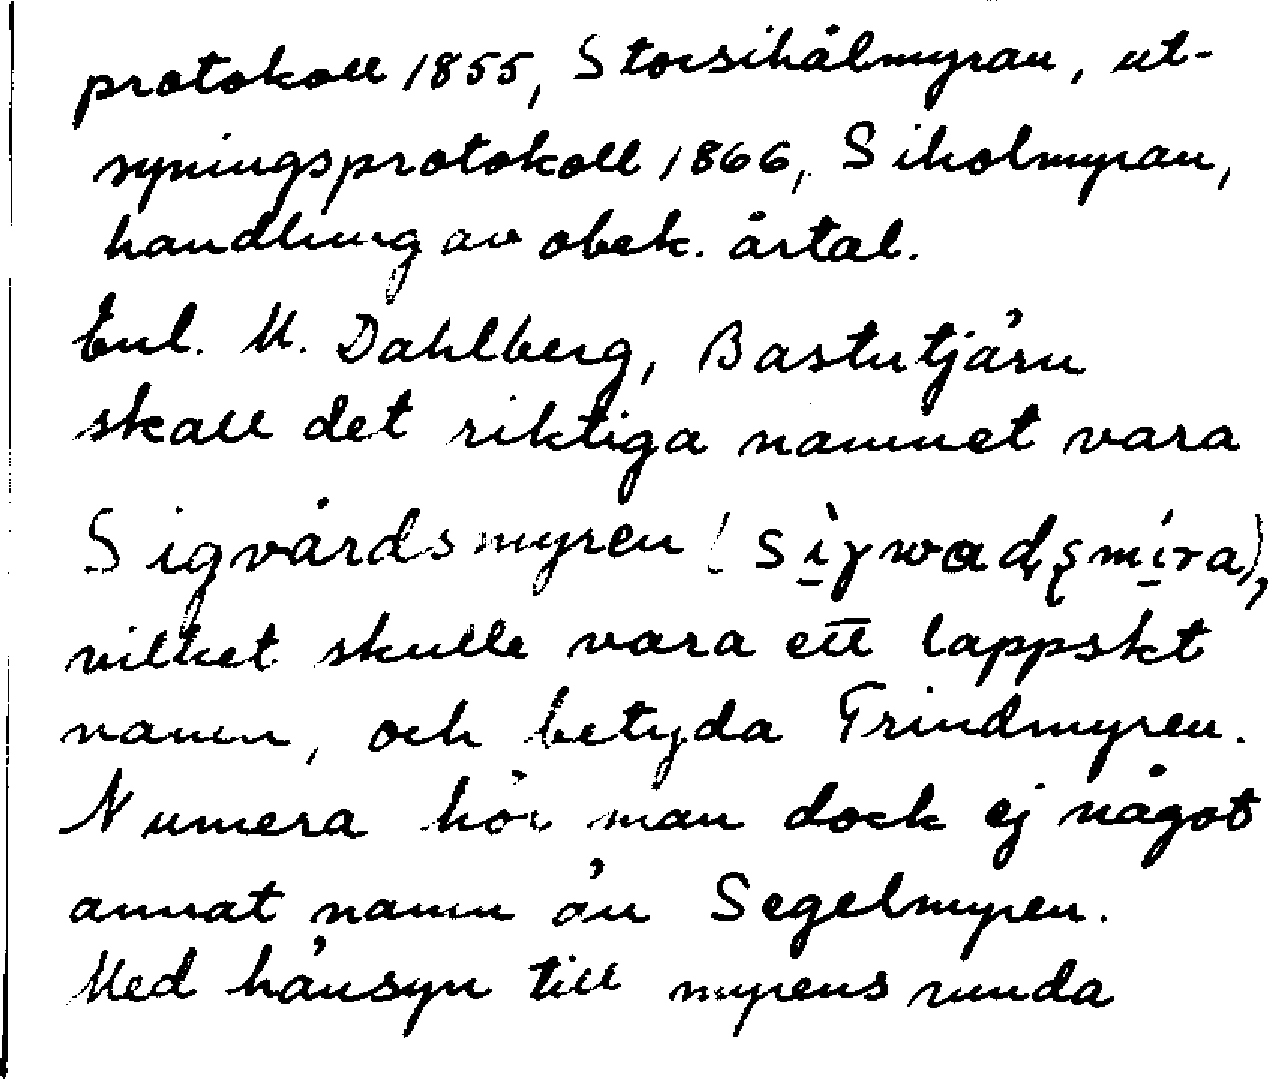 protokoll 1855, Storsihålmyran, ut-
syningsprotokoll 1866, Siholmyran,
handling av obek. årtal.
Enl. M. Dahlberg, Bastutjärn
skall det riktiga namnet vara
Sigvårdsmyren (sìγwaḍʂmíra),
vilket skulle vara ett lappskt
namn, och betyda Trindmyren.
Numera hör man dock ej något
annat namn än Segelmyren.
Med hänsyn till myrens runda